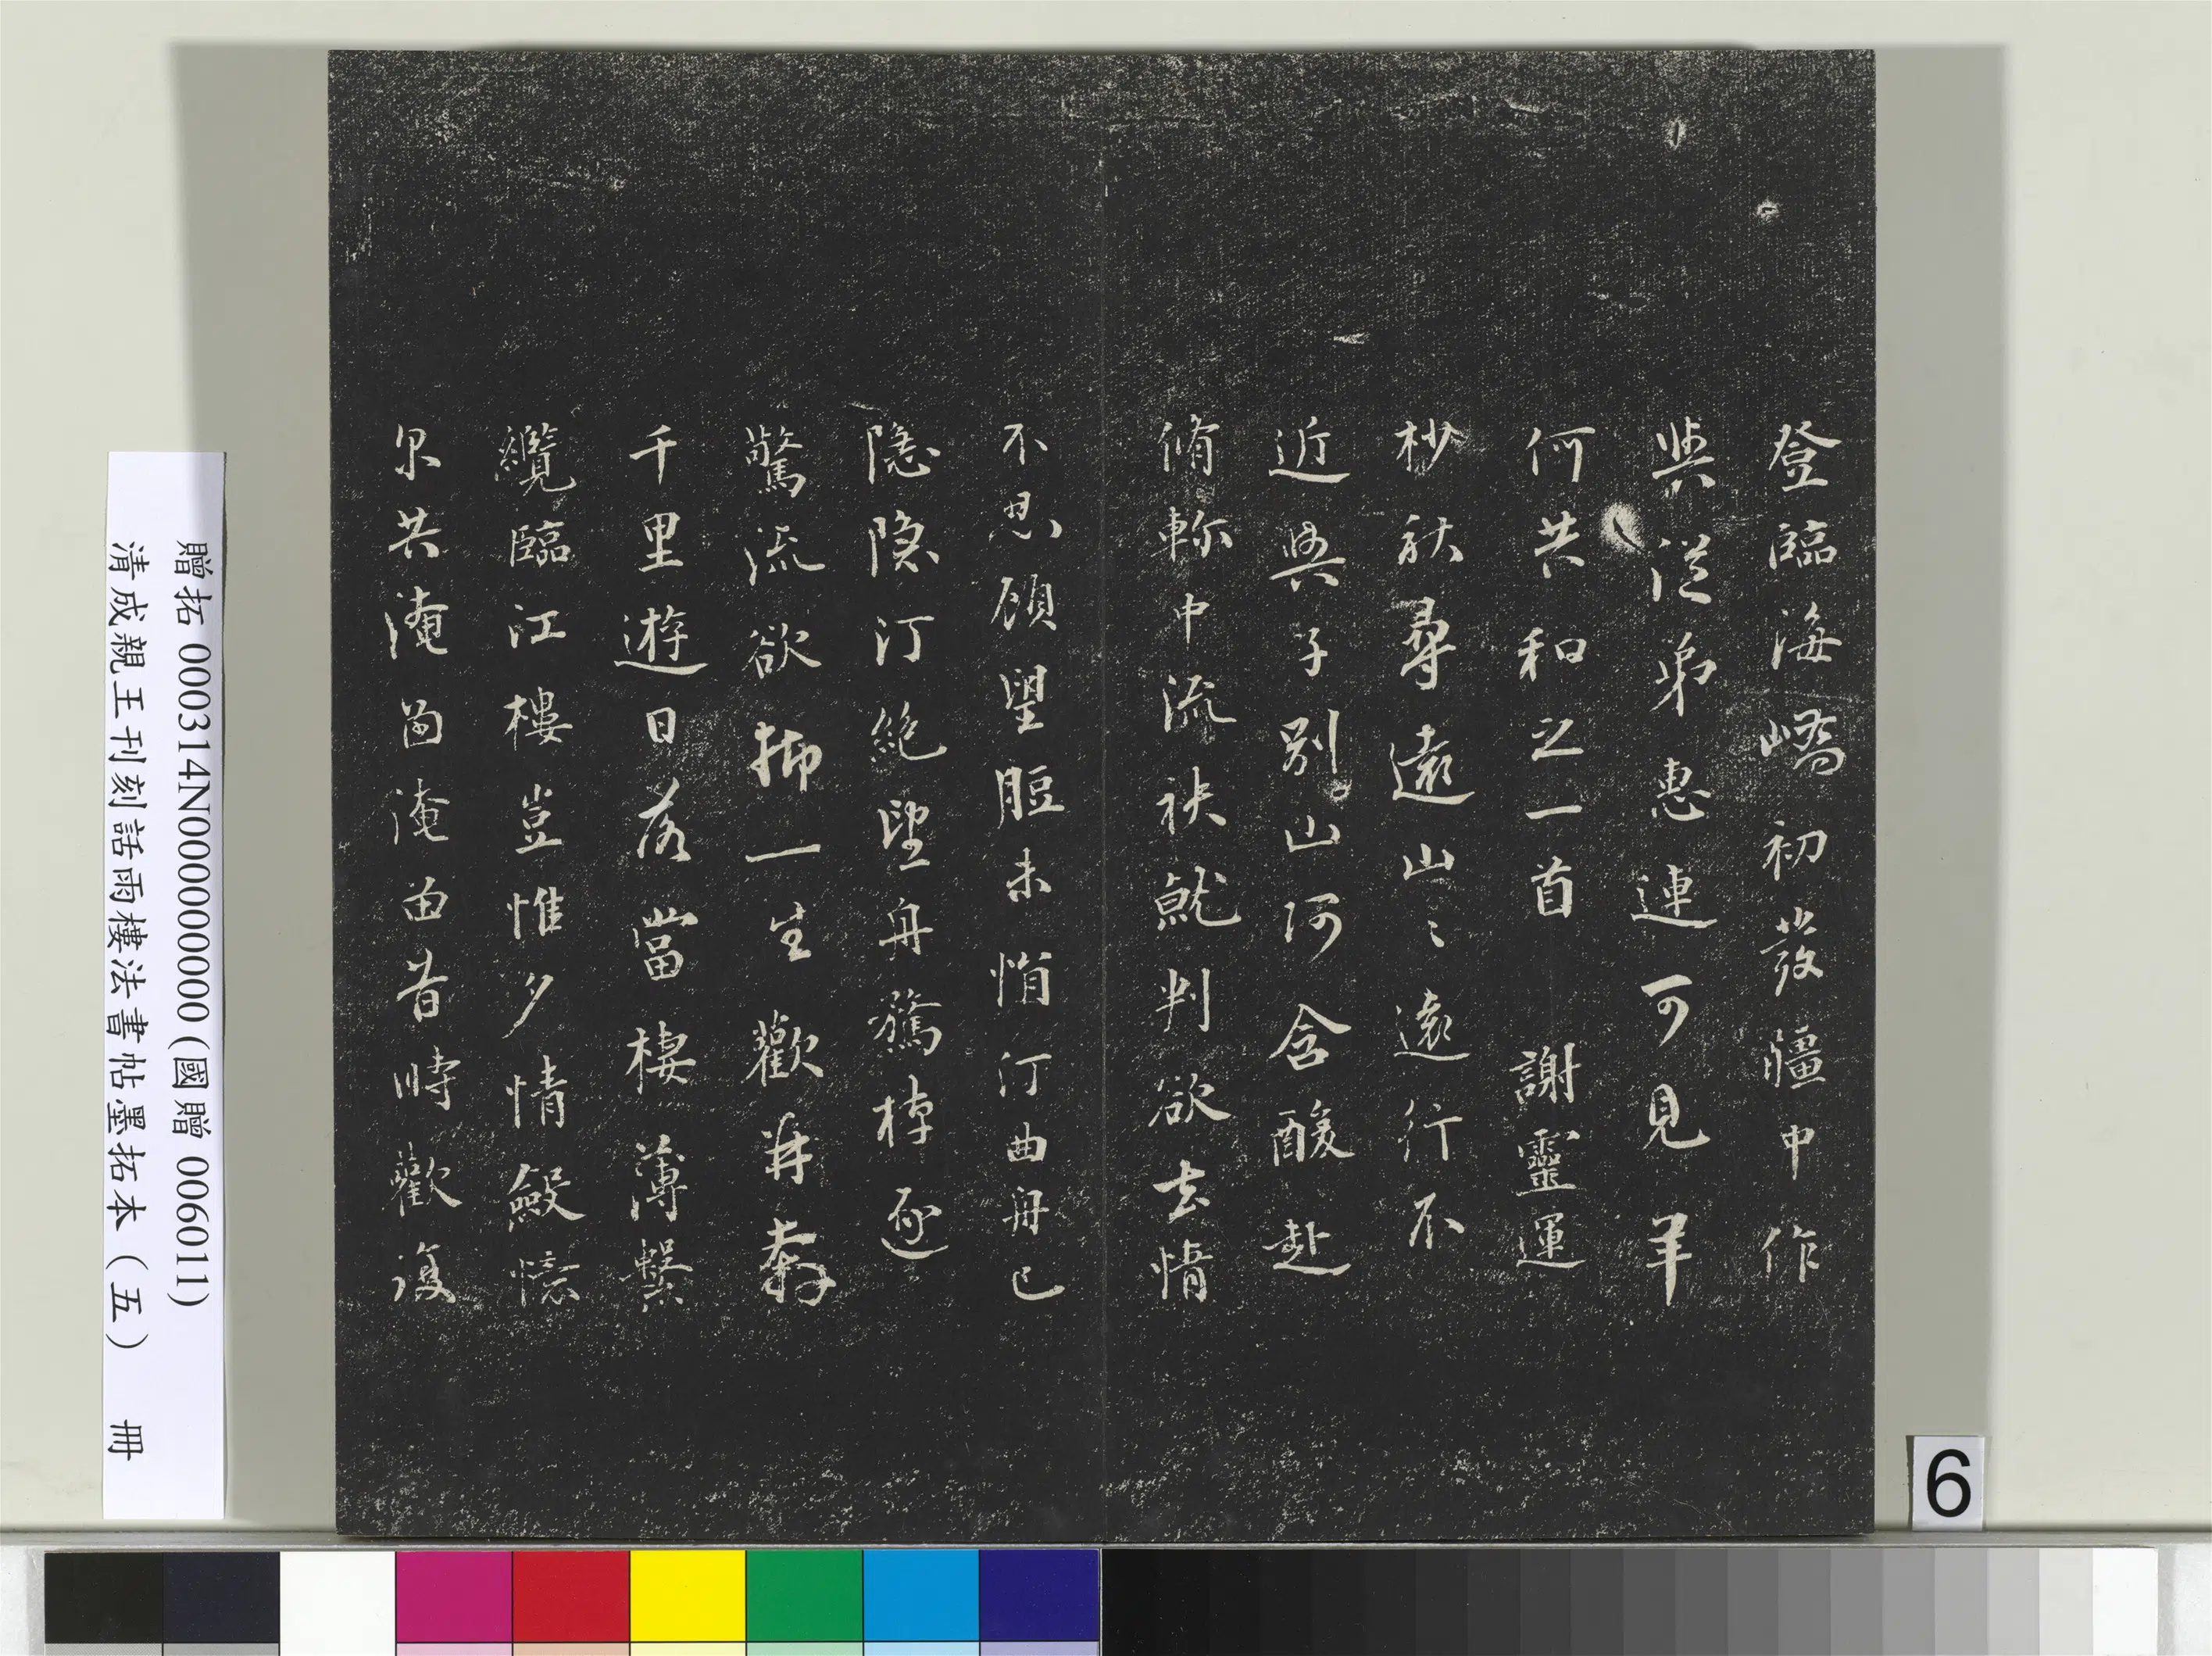 登臨海嶠初發疆中作
與從弟惠連可見羊
何共和之一首　謝靈運
杪秋尋遠山〻遠行不
近與子別山阿含酸赴
脩軫中流袂就判欲去情
不思顧望脰未悁汀曲舟已
隱隱汀絕望舟鶩棹逐
驚流欲抑一生歡并奔
千里遊日落當棲薄繫
纜臨江樓豈惟夕情斂憶
尔共淹留淹留昔時歡復
贈拓 000314N000000000 (國贈 006011)
清成親王刊刻詒晉樓法書帖墨拓本（五） 冊
6